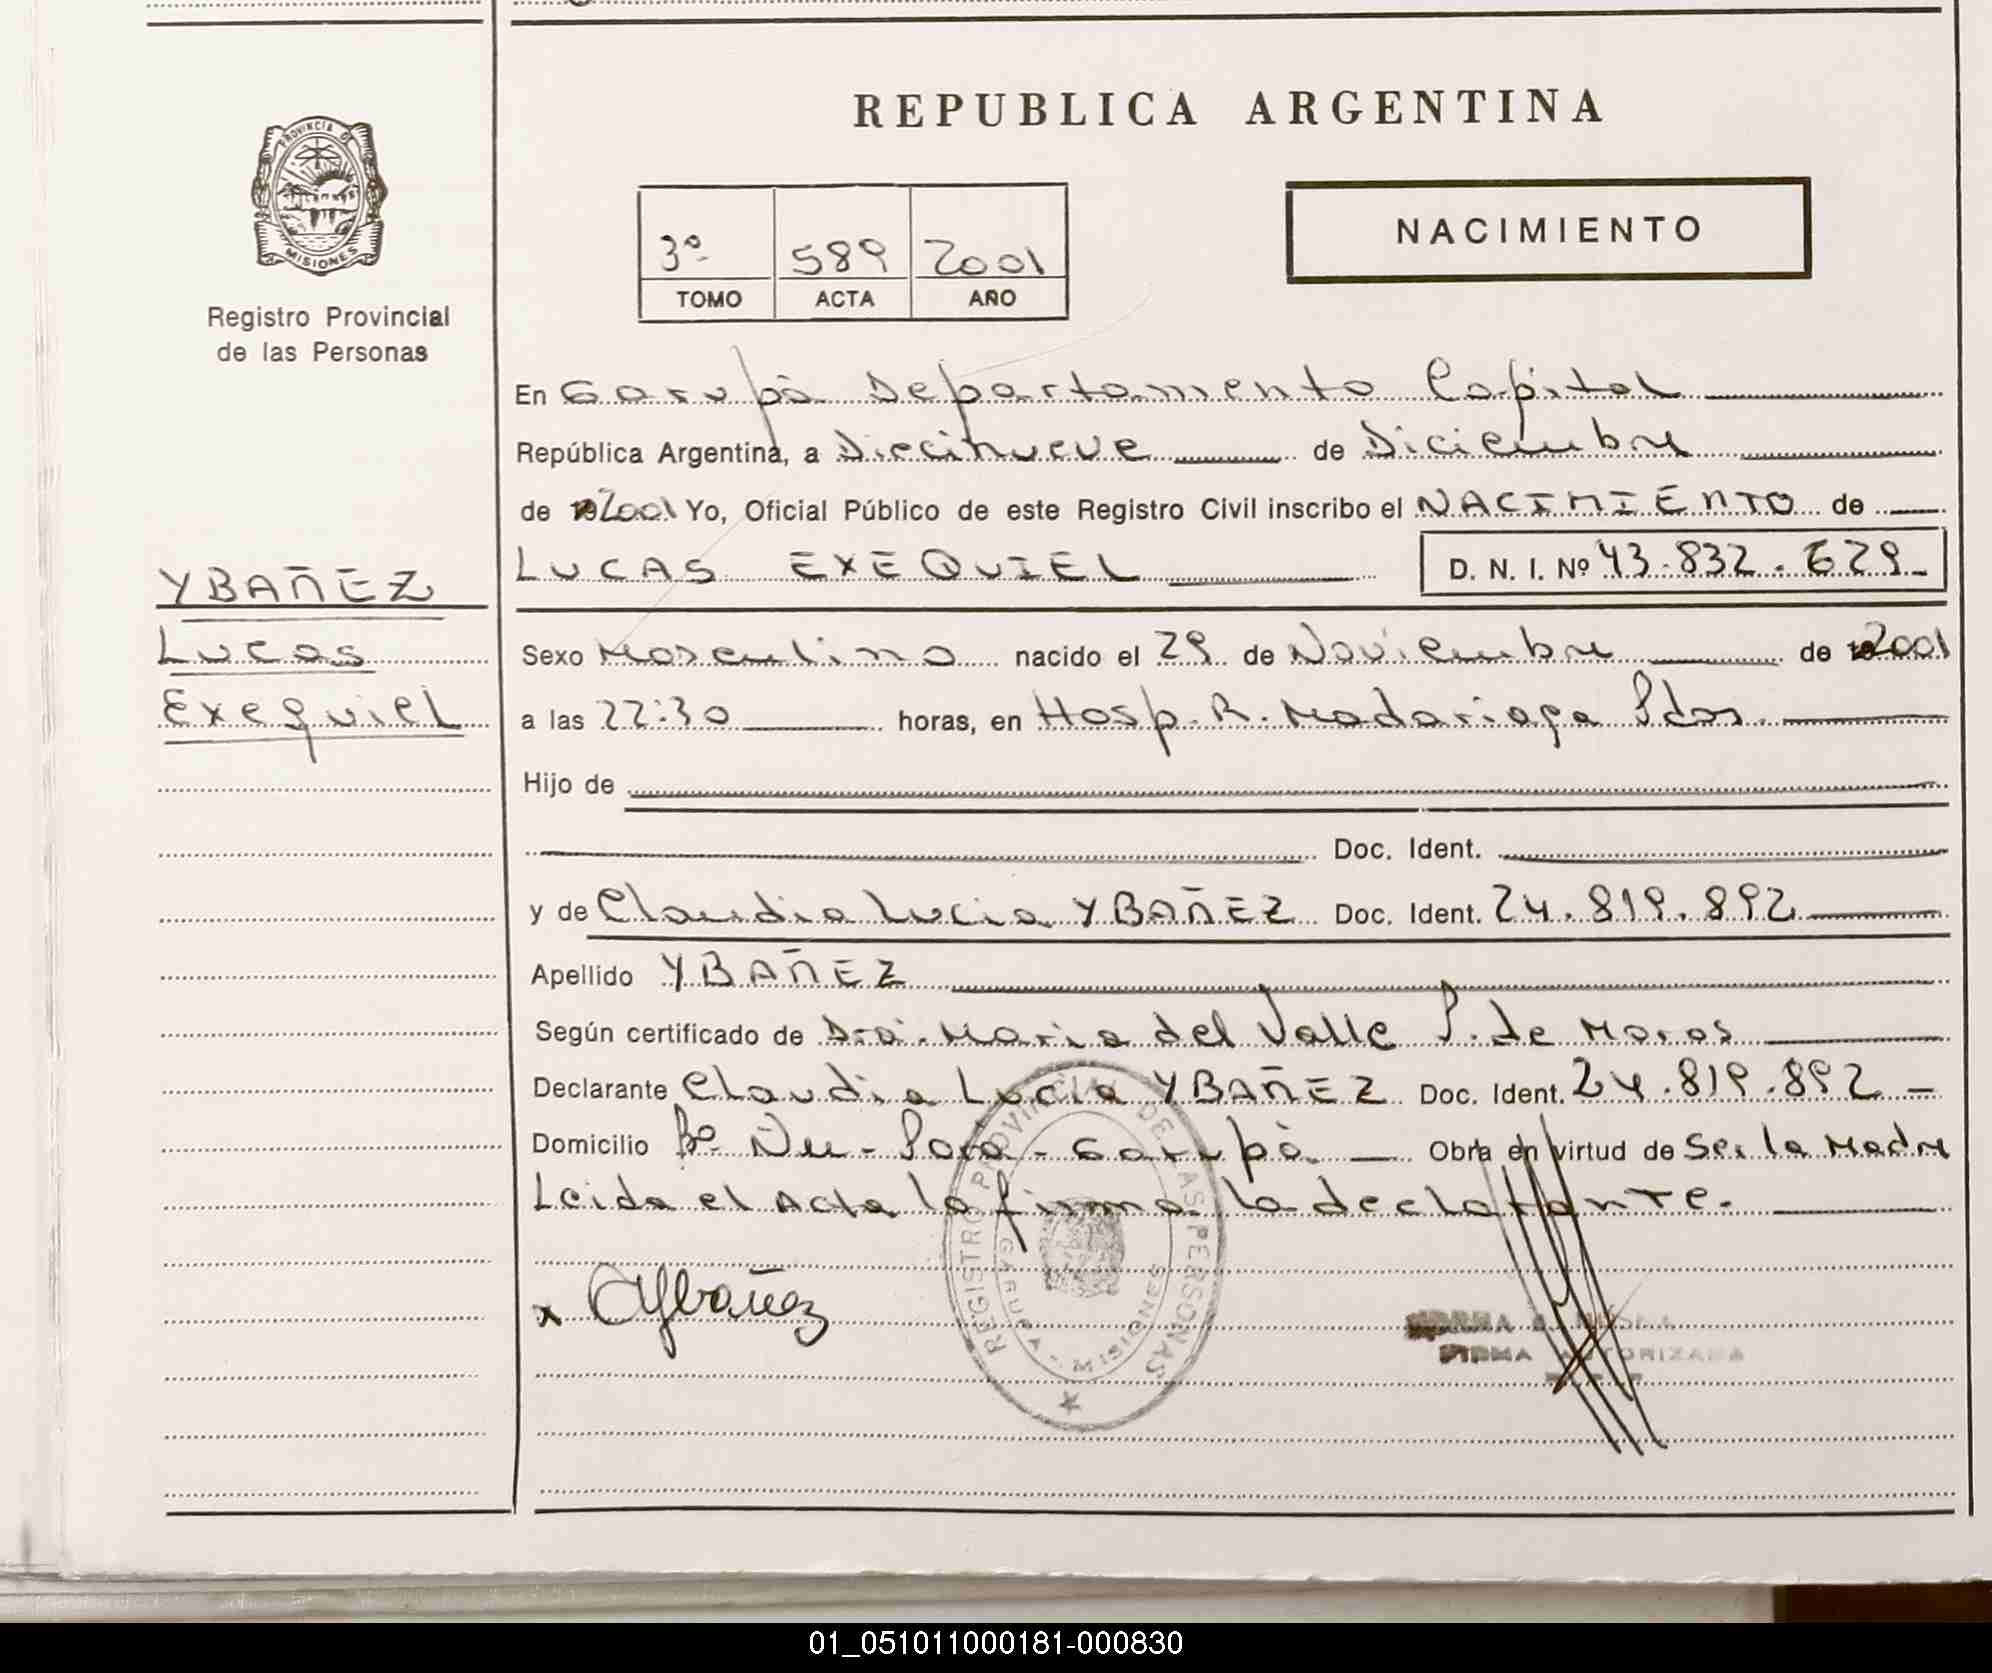 REPUBLICA ARGENTINA
PROVINCIA DE
MISIONES
Registro Provincial
de las Personas
NACIMIENTO
3º 589 2001
TOMO ACTA AÑO
En Garupà Departamento Capital
República Argentina, a Diecinueve de Diciembre
de 2001 Yo, Oficial Público de este Registro Civil inscribo el NACIMIENTO de
LUCAS EXEQUIEL D. N. I. Nº 43.832.629
YBAÑEZ
Lucas
Exequiel
Sexo Masculino nacido el 29 de Noviembre de 2001
a las 22:30 horas, en Hosp. R. Madariaga Pdas.
Hijo de
Doc. Ident.
y de Claudia Lucia YBAÑEZ Doc. Ident. 24.819.892
Apellido YBAÑEZ
Según certificado de Dra. Maria del Valle P. de Moros
Declarante Claudia Lucia YBAÑEZ Doc. Ident. 24.819.892
Domicilio Bº Ñu-Pora-Garupà Obra en virtud de Ser la Madre
Leida el Acta la firma la declarante.
x CYbañez
REGISTRO PROVINCIAL DE LAS PERSONAS
GARUPA - MISIONES
FIRMA AUTORIZADA
01_051011000181-000830